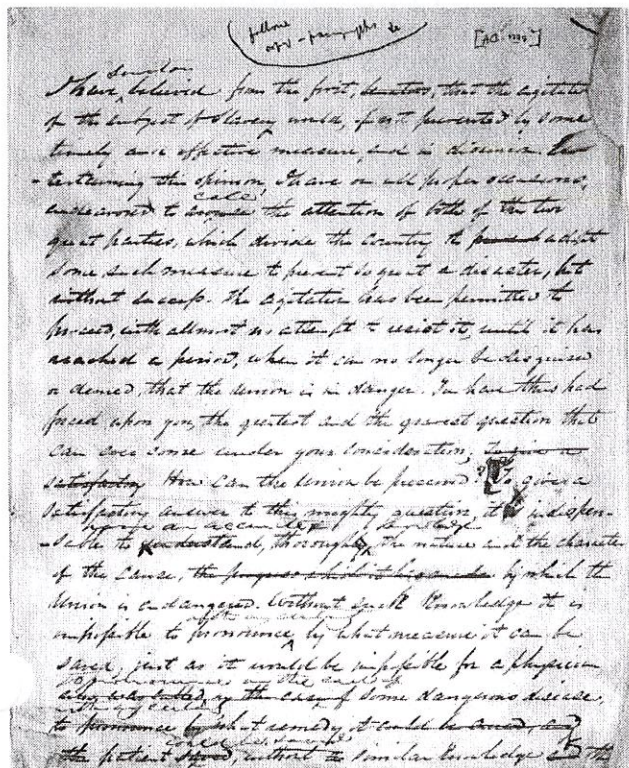 follow
[AD ms]
Senators
I have, believed from the first, Senators, that the agitation
of the subject of slavery would, if not prevented by some
timely and effective measure, end in disunion. En-
tertaining this opinion, I have on all proper occasions,
call
endeavored to the attention of both of the two
great parties, which divide the country to adopt
some such measure to prevent so great a disaster, but
without success. The agitation has been permitted to
proceed, with allmost no attempt to resist it, until it has
reached a period, when it can no longer be disguised
or denied, that the Union is in danger. You have thus had
forced upon you, the greatest and the gravest question that
can ever come under your consideration; To give a
satisfactory How can the Union be preserved? To give a
satisfactory answer to this mighty question, it is indispen-
have an accurate & knowledge
-sable to understand, thorough the nature and the character
of the cause, the progress which it has made by which the
Union is endangered. Without such knowledge it is
with any certainty
impossible to pronounce, by what measure it can be
saved, just as it would be impossible for a physician
to pronounce in the case of
in the case of some dangerous disease,
with any certainty
to pronounce by what remedy it could be cured, and
could be saved
the patient saved, without similar knowledge